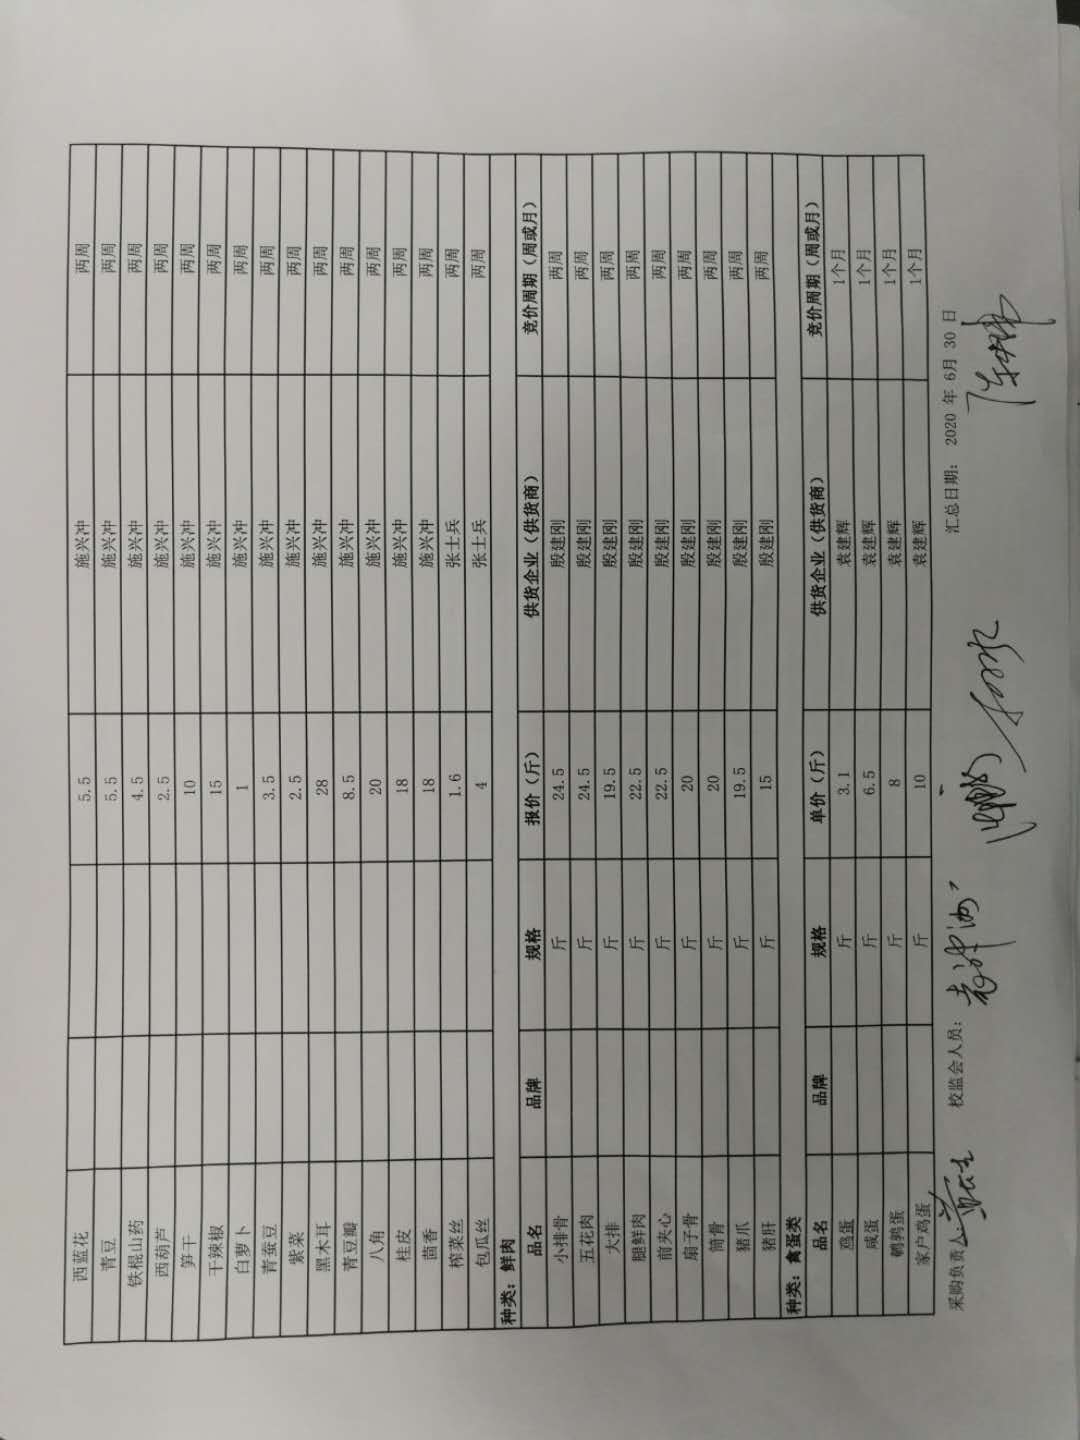 西蓝花 5.5 施兴冲 两周
青豆 5.5 施兴冲 两周
铁棍山药 4.5 施兴冲 两周
西葫芦 2.5 施兴冲 两周
笋干 10 施兴冲 两周
干辣椒 15 施兴冲 两周
白萝卜 1 施兴冲 两周
青蚕豆 3.5 施兴冲 两周
紫菜 2.5 施兴冲 两周
黑木耳 28 施兴冲 两周
青豆瓣 8.5 施兴冲 两周
八角 20 施兴冲 两周
桂皮 18 施兴冲 两周
茴香 18 施兴冲 两周
榨菜丝 1.6 张士兵 两周
包瓜丝 4 张士兵 两周
种类：鲜肉
品名 品牌 规格 报价（斤） 供货企业（供货商） 竞价周期（周或月）
小排骨 斤 24.5 殷建刚 两周
五花肉 斤 24.5 殷建刚 两周
大排 斤 19.5 殷建刚 两周
腿鲜肉 斤 22.5 殷建刚 两周
前夹心 斤 22.5 殷建刚 两周
扇子骨 斤 20 殷建刚 两周
筒骨 斤 20 殷建刚 两周
猪爪 斤 19.5 殷建刚 两周
猪肝 斤 15 殷建刚 两周
种类：禽蛋类
品名 品牌 规格 单价（斤） 供货企业（供货商） 竞价周期（周或月）
鸡蛋 斤 3.1 袁建辉 1个月
咸蛋 斤 6.5 袁建辉 1个月
鹌鹑蛋 斤 8 袁建辉 1个月
家户鸡蛋 斤 10 袁建辉 1个月
采购负责人： 校监会人员： 汇总日期： 2020 年 6月 30 日